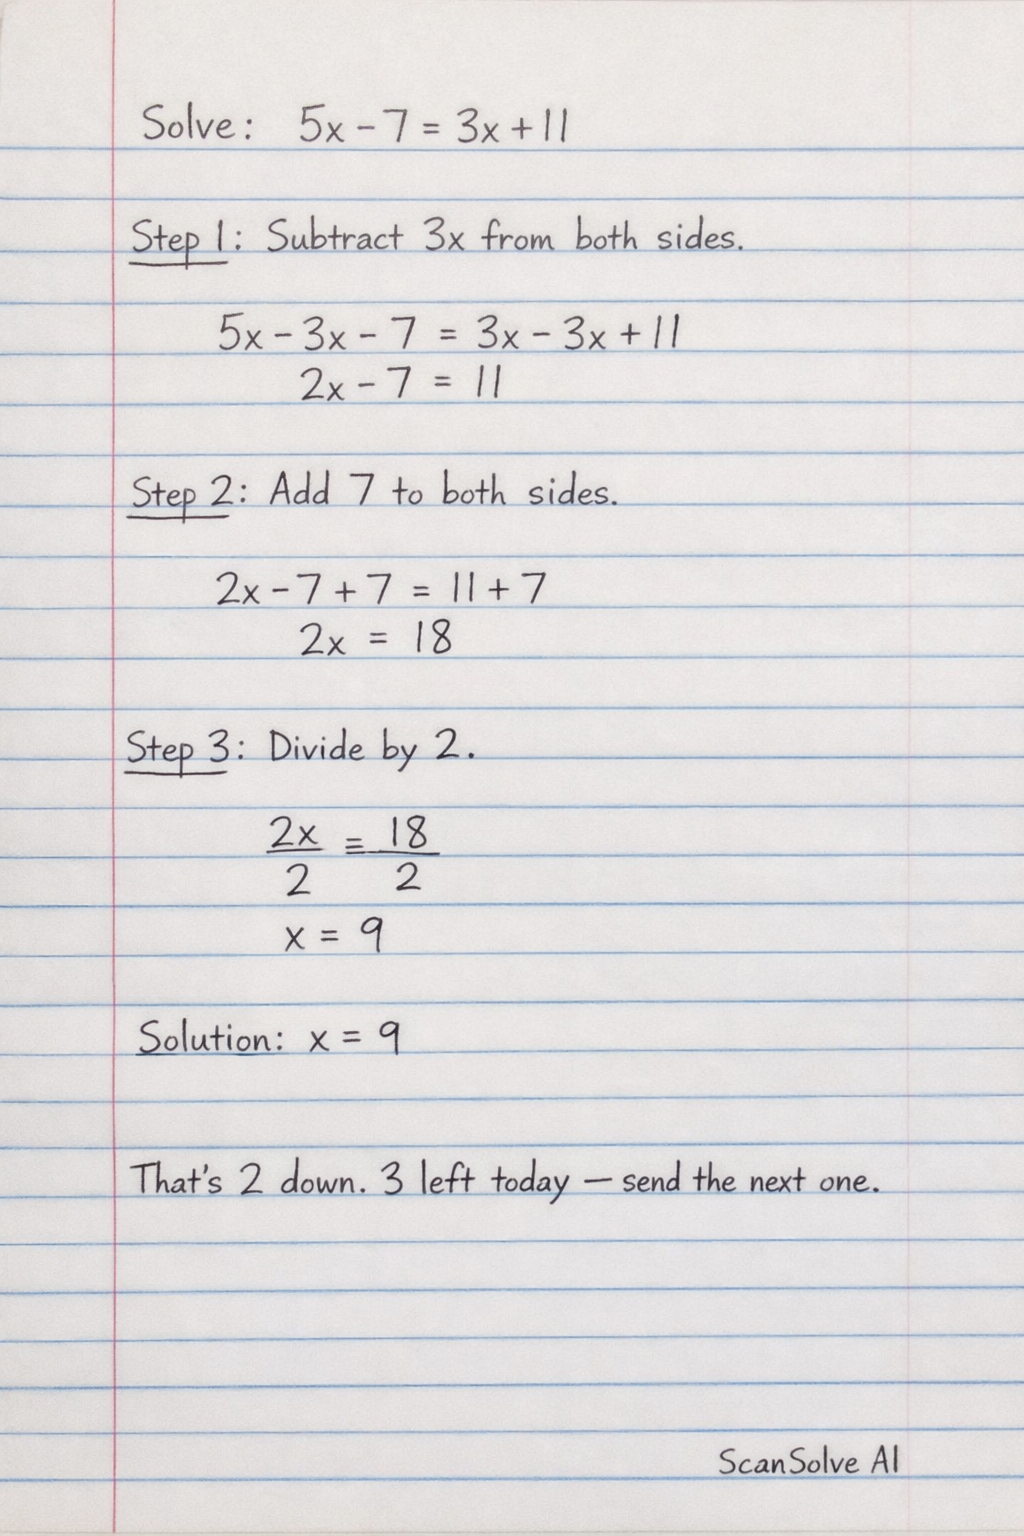 Solve: 5x - 7 = 3x + 11
Step 1: Subtract 3x from both sides.
5x - 3x - 7 = 3x - 3x + 11
2x - 7 = 11
Step 2: Add 7 to both sides.
2x - 7 + 7 = 11 + 7
2x = 18
Step 3: Divide by 2.
2x = 18
2 2
x = 9
Solution: x = 9
That's 2 down. 3 left today — send the next one.
ScanSolve AI